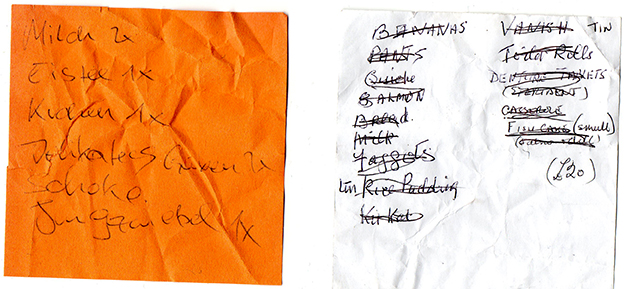 Milch 2x
Eistee 1x
Kuchen 1x
Delikatess Gurken 2x
Schoko
Jungzwiebel 1x
BANANAS
PANTS
Quiche
SALMON
Bread
MILK
Faggots
tin Rice Pudding
Kit Kat
VANISH TIN
Rolls
DENTURE TABLETS
CASSEROLE
FISH CAKE (small)
(£20)